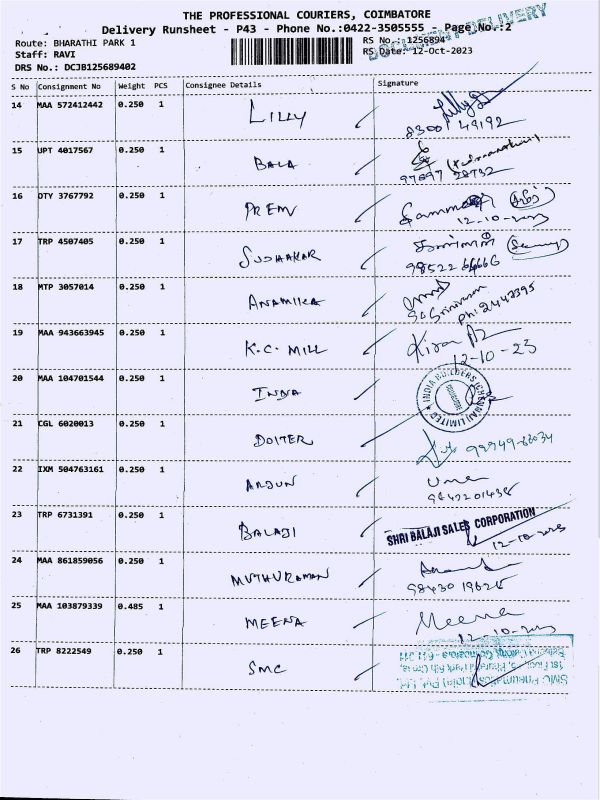 THE PROFESSIONAL COURIERS, COIMBATORE
Delivery Runsheet - P43 - Phone No.:0422-3505555 - Page No.:2
DOCUMENT DELIVERY
Route: BHARATHI PARK 1
RS No. :1256894
Staff: RAVI
RS Date: 12-Oct-2023
DRS No.: DCJB125689402
S No Consignment No Weight PCS Consignee Details Signature
14 MAA 572412442 0.250 1 LILLY
8300 49192
15 UPT 4017567 0.250 1 BALA
97897 28732
16 DTY 3767792 0.250 1 PREM
12-10-2023
17 TRP 4507405 0.250 1 SUDHAKAR
985226 6666
18 MTP 3057014 0.250 1 ANAMIKA
Srinivasan
Ph: 2443395
19 MAA 943663945 0.250 1 K.C. MILL Kiran
12-10-23
20 MAA 104701544 0.250 1 INDIA INDIA BUILDERS (CHENNAI) LIMITED
COIMBATORE
21 CGL 6020013 0.250 1 DOITER
22 IXM 504763161 0.250 1 ARJUN Uma
9842201438
23 TRP 6731391 0.250 1 BALAJI SHRI BALAJI SALES CORPORATION
12-10-2023
24 MAA 861859056 0.250 1 MUTHURAMAN
98430 19625
25 MAA 103879339 0.485 1 MEENA Meena
12-10-2023
26 TRP 8222549 0.250 1 SMC SMC Pneumatics (India) Pvt. Ltd.